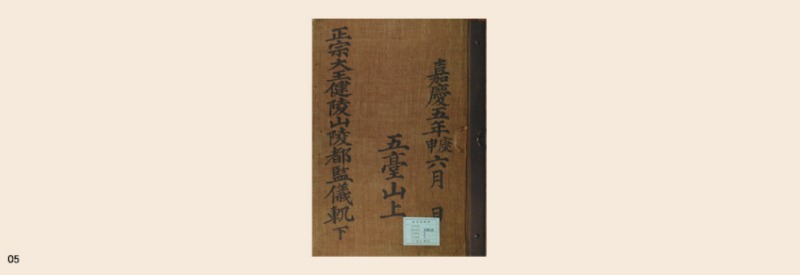 嘉慶五年庚申六月 日
五臺山上
正宗大王健陵山陵都監儀軌 下
05